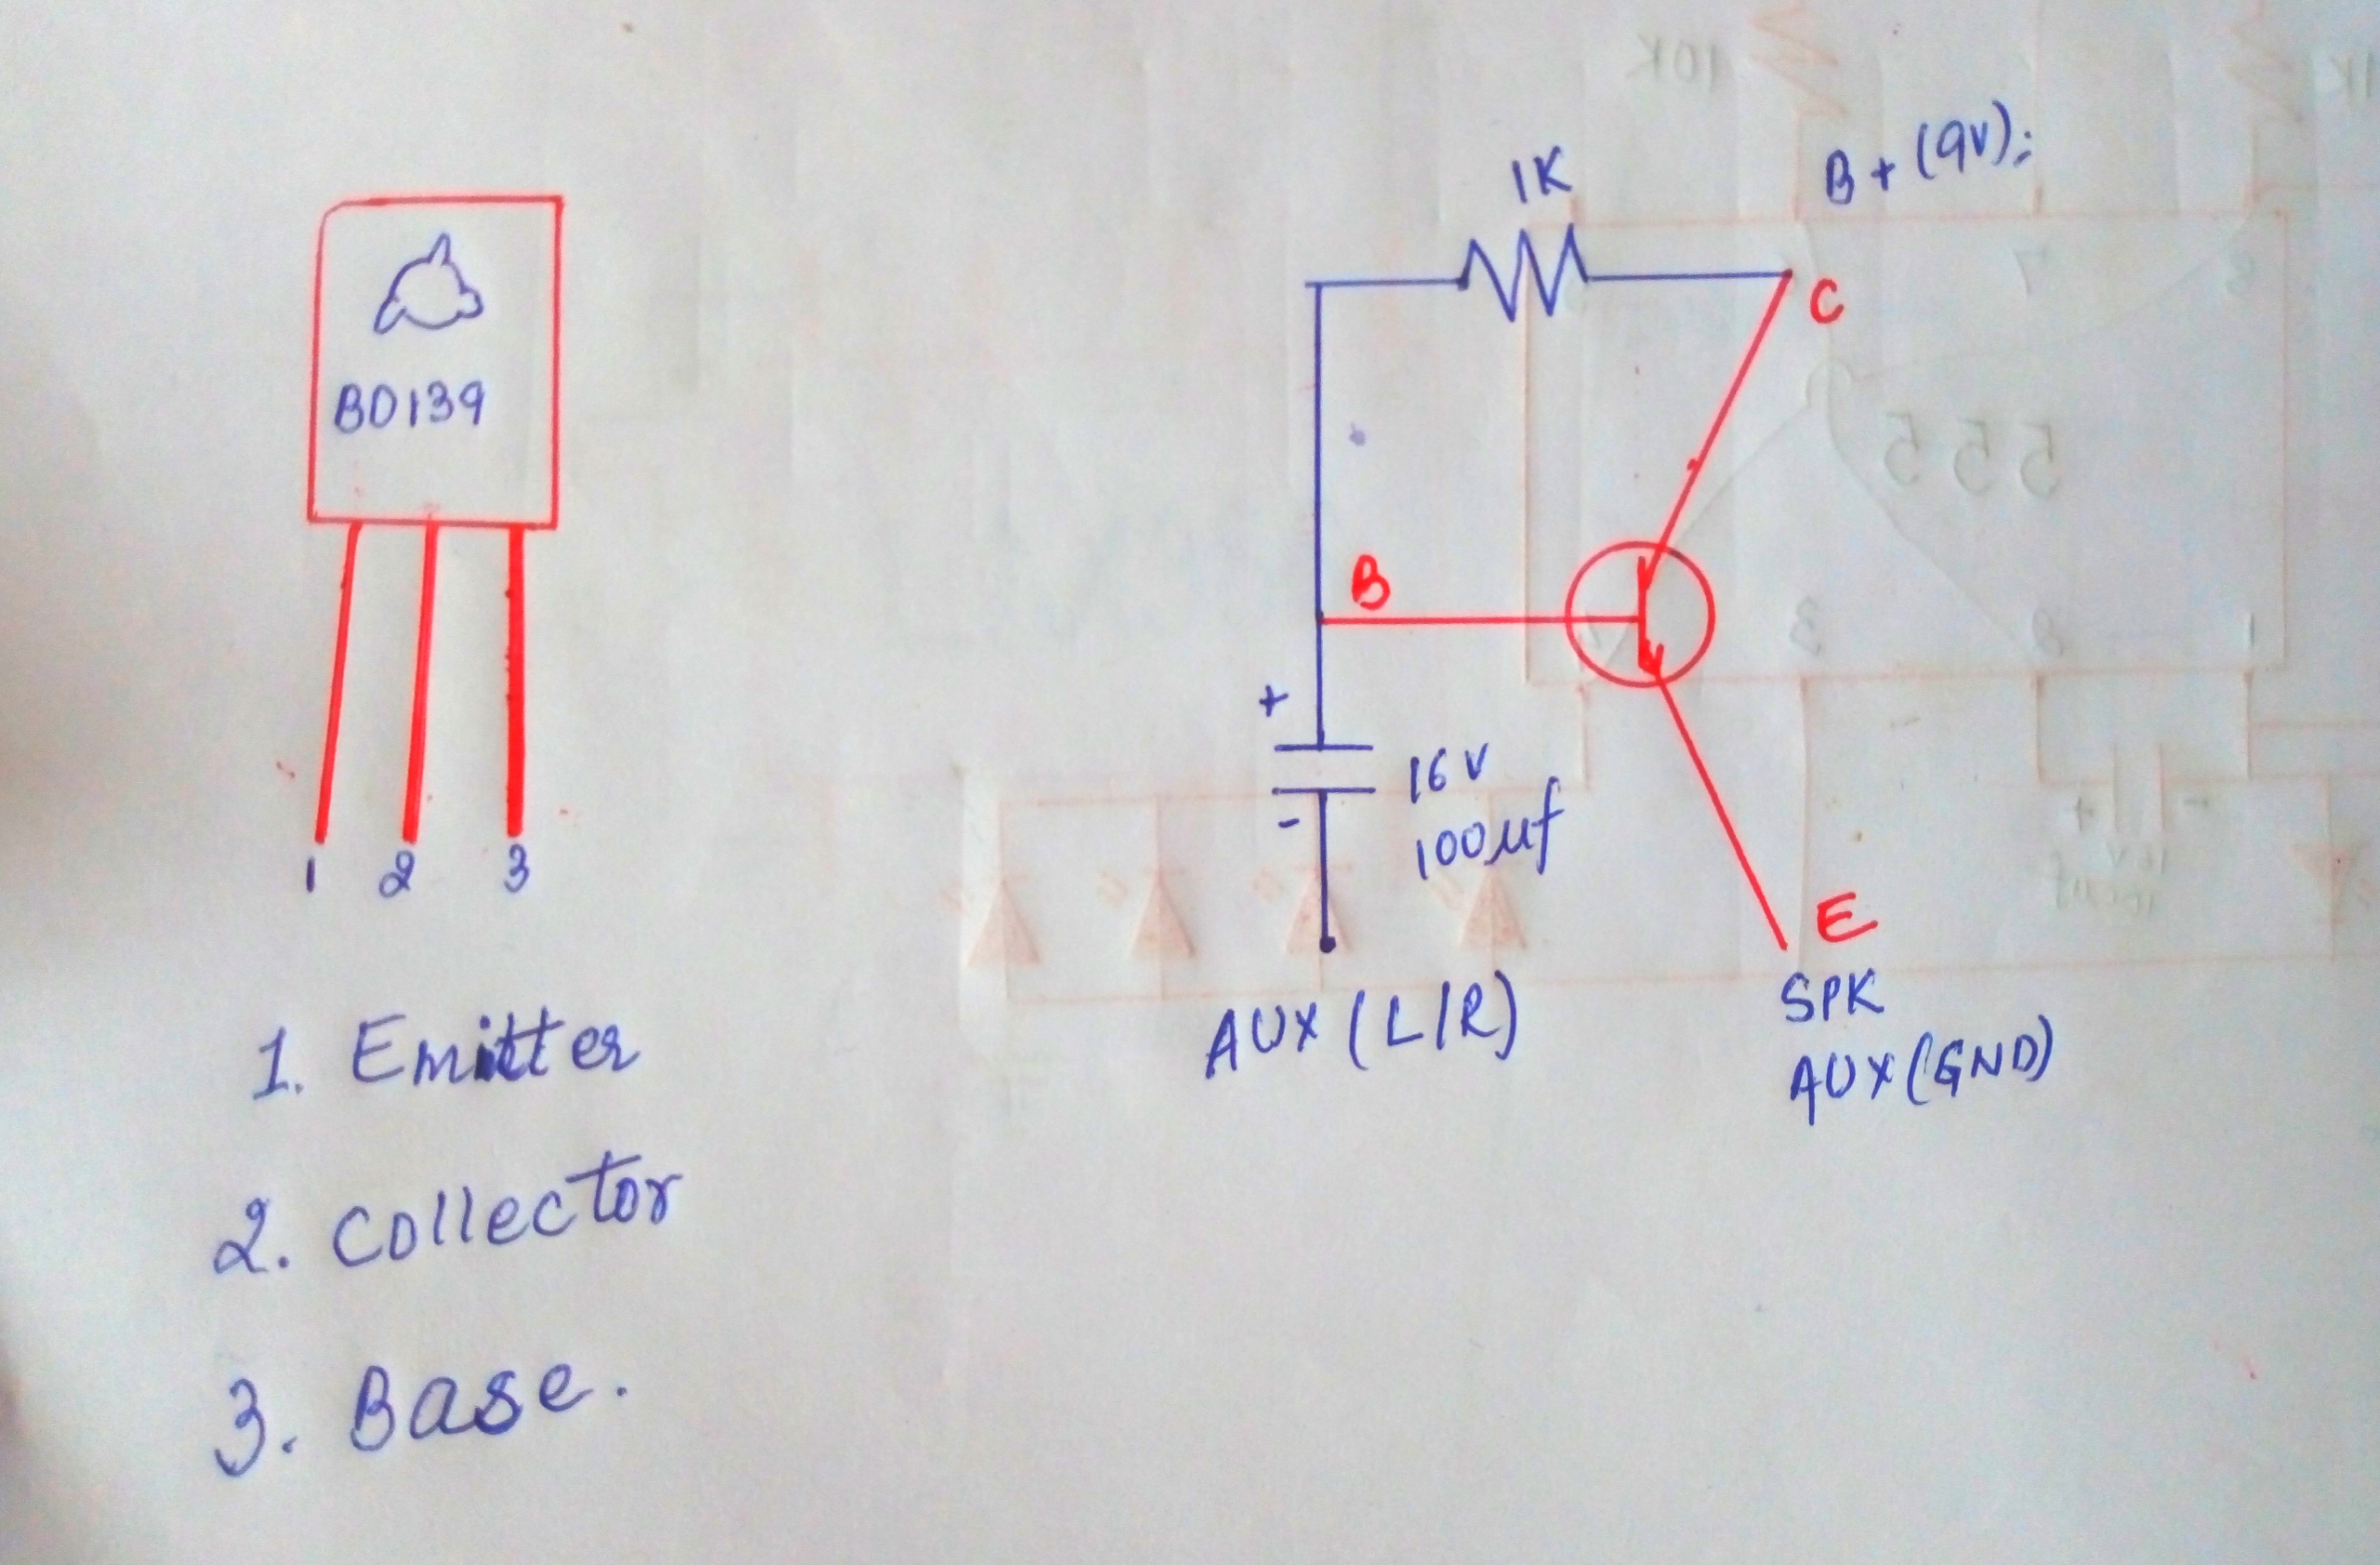 BD139
1 2 3
1. Emitter
2. Collector
3. Base.
1K
B+ (9V);
C
B
+
-
16V
100uf
E
AUX (L/R)
SPK
AUX (GND)
10K
1K
7
555
3
8
1
+
-